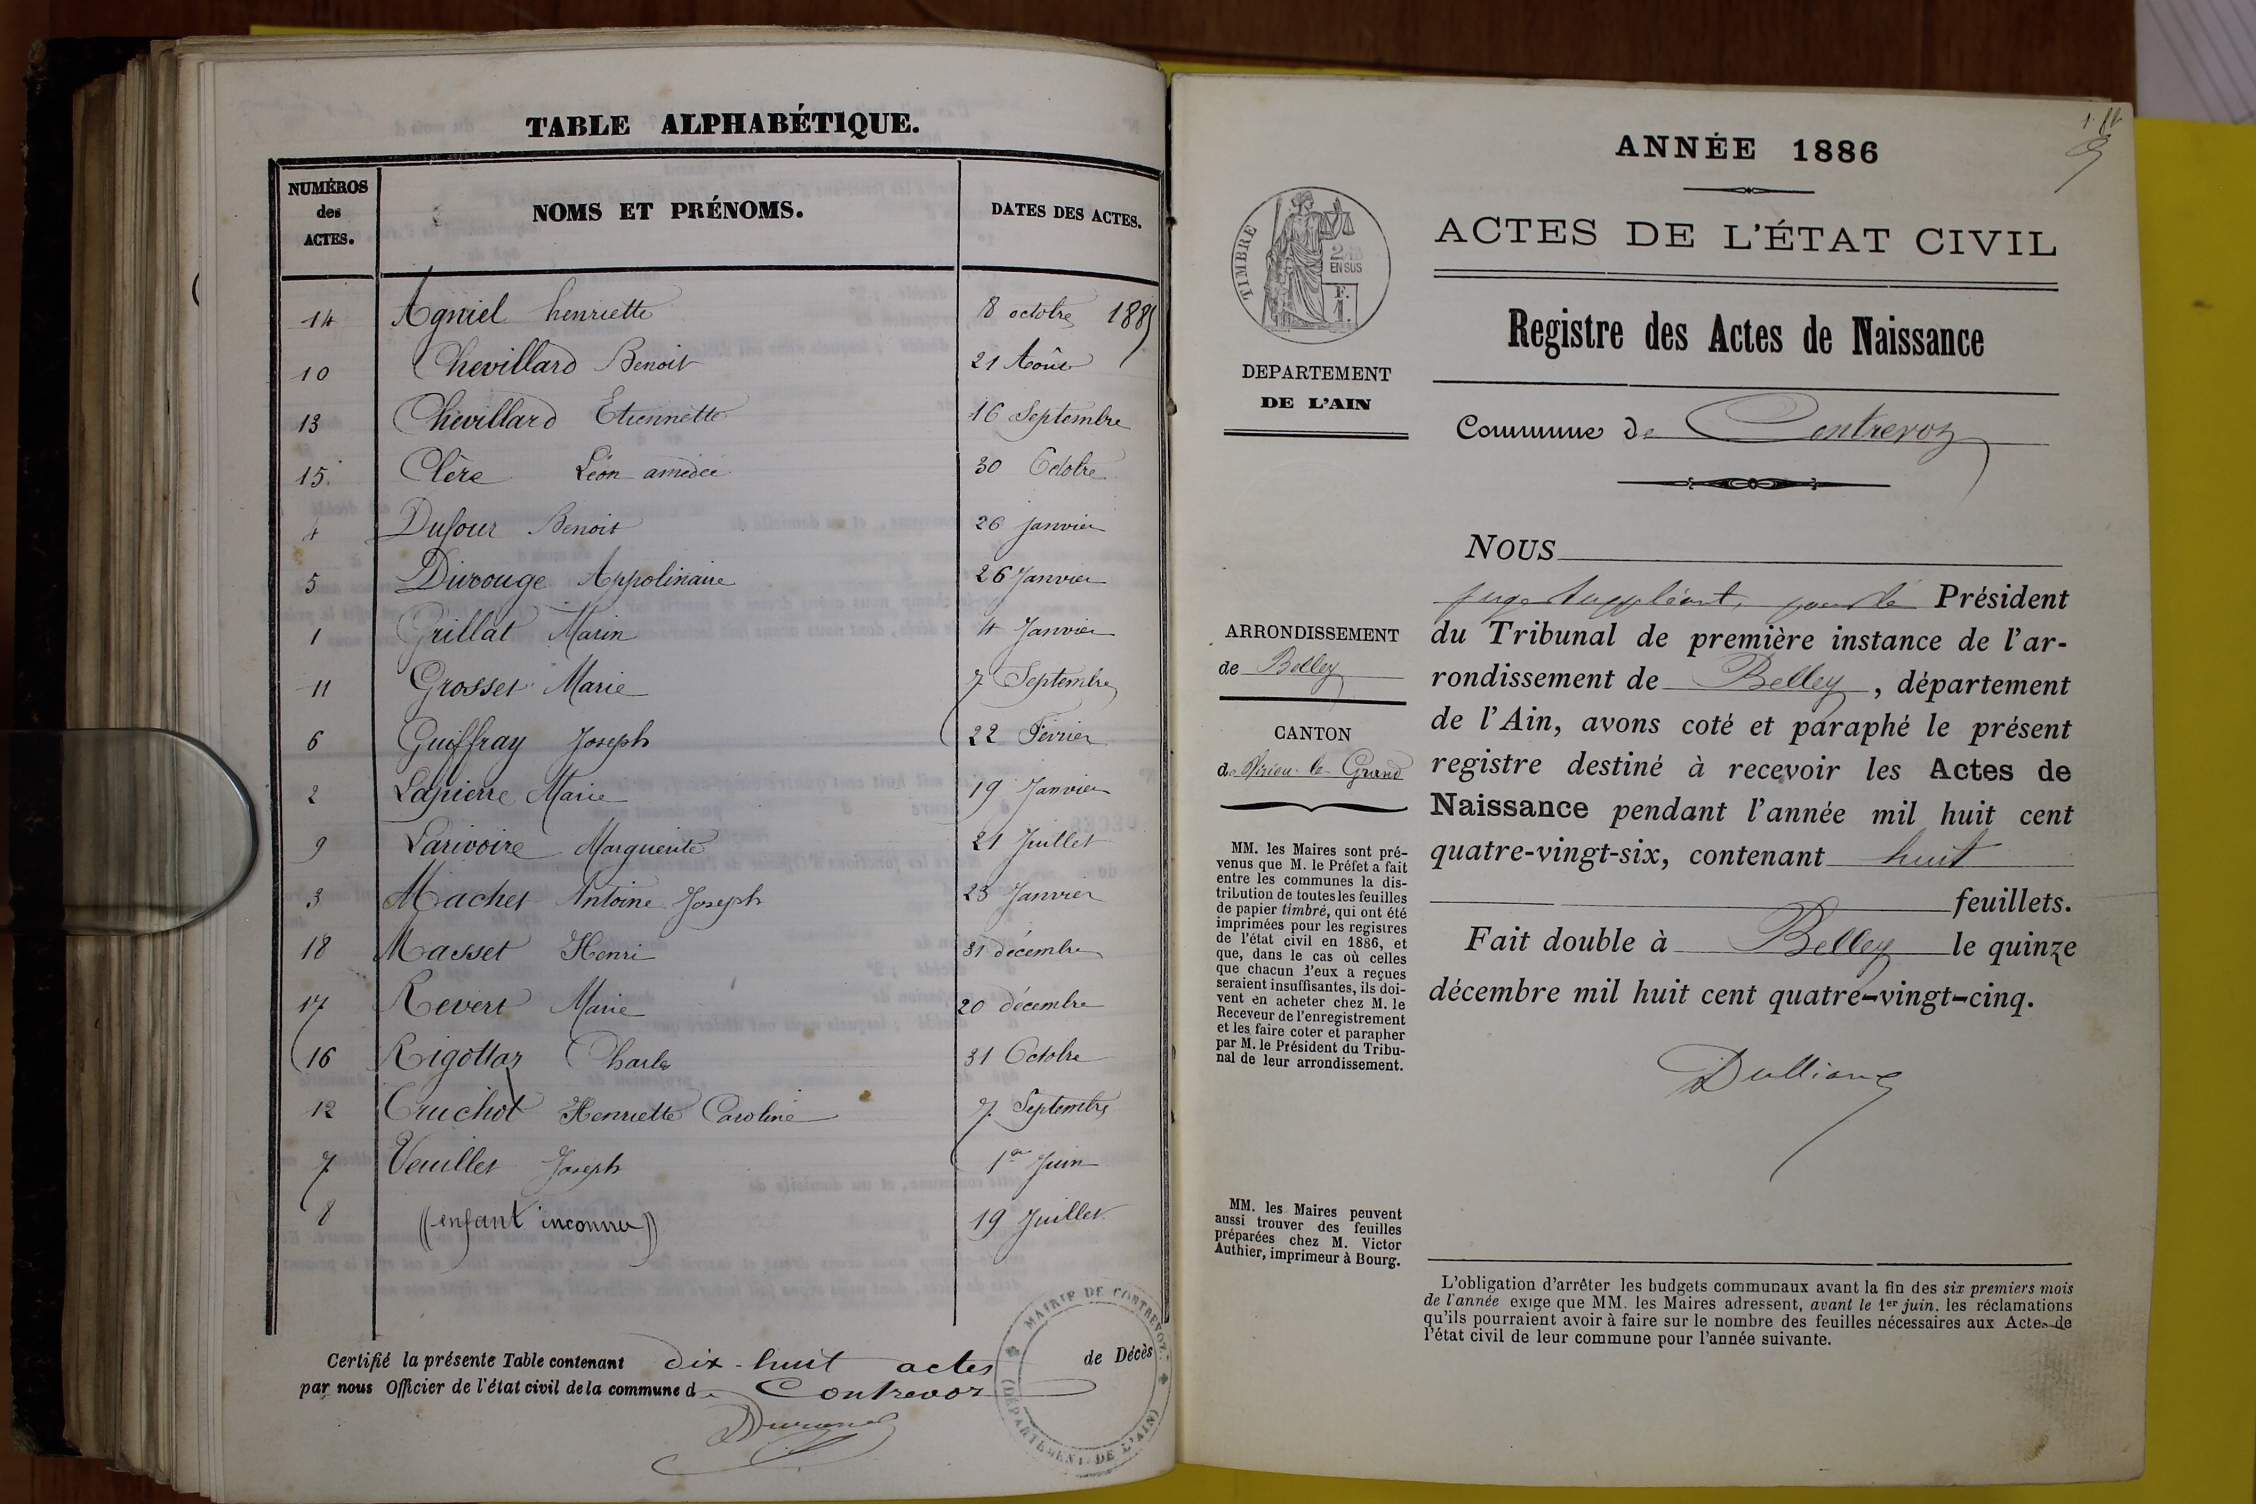 TABLE ALPHABÉTIQUE.
NUMÉROS des ACTES. NOMS ET PRÉNOMS. DATES DES ACTES.
14 Agniel henriette 8 octobre 1885
10 Chevillard Benoit 21 Août
13 Chevillard Etiennette 16 Septembre
15 Clère Léon amédée 30 Octobre
4 Dufour Benoit 26 janvier
5 Durouge Appolinaire 26 Janvier
1 Grillat Marin 4 Janvier
11 Grosset Marie 7 Septembre
6 Guiffray Joseph 22 Février
2 Lapierre Marie 19 Janvier
9 Larivoire Marguerite 21 Juillet
3 Machet Antoine Joseph 23 Janvier
18 Masset Henri 31 décembre
17 Revert Marie 20 décembre
16 Rigottaz Charles 31 Octobre
12 Cruchot Henriette Caroline 7 Septembre
7 Veuillet Joseph 1er Juin
8 ((enfant inconnu)) 19 Juillet
Certifié la présente Table contenant dix-huit actes de Décès
par nous Officier de l'état civil de la commune de Contrevoz
MAIRIE DE CONTREVOZ
(DÉPARTEMENT DE L'AIN)
ANNÉE 1886
ACTES DE L'ÉTAT CIVIL
TIMBRE
EN SUS
F.
1.
Registre des Actes de Naissance
DEPARTEMENT
DE L'AIN
Commune de Contrevoz
NOUS
juge suppléant, pour le Président
du Tribunal de première instance de l'ar-
rondissement de Belley, département
de l'Ain, avons coté et paraphé le présent
registre destiné à recevoir les Actes de
Naissance pendant l'année mil huit cent
quatre-vingt-six, contenant huit
feuillets.
Fait double à Belley le quinze
décembre mil huit cent quatre-vingt-cinq.
ARRONDISSEMENT
de Belley
CANTON
de Virieu-le-Grand
MM. les Maires sont pré-
venus que M. le Préfet a fait
entre les communes la dis-
tribution de toutes les feuilles
de papier timbré, qui ont été
imprimées pour les registres
de l'état civil en 1886, et
que, dans le cas où celles
que chacun d'eux a reçues
seraient insuffisantes, ils doi-
vent en acheter chez M. le
Receveur de l'enregistrement
et les faire coter et parapher
par M. le Président du Tribu-
nal de leur arrondissement.
MM. les Maires peuvent
aussi trouver des feuilles
préparées chez M. Victor
Authier, imprimeur à Bourg.
L'obligation d'arrêter les budgets communaux avant la fin des six premiers mois
de l'année exige que MM. les Maires adressent, avant le 1er juin, les réclamations
qu'ils pourraient avoir à faire sur le nombre des feuilles nécessaires aux Actes de
l'état civil de leur commune pour l'année suivante.